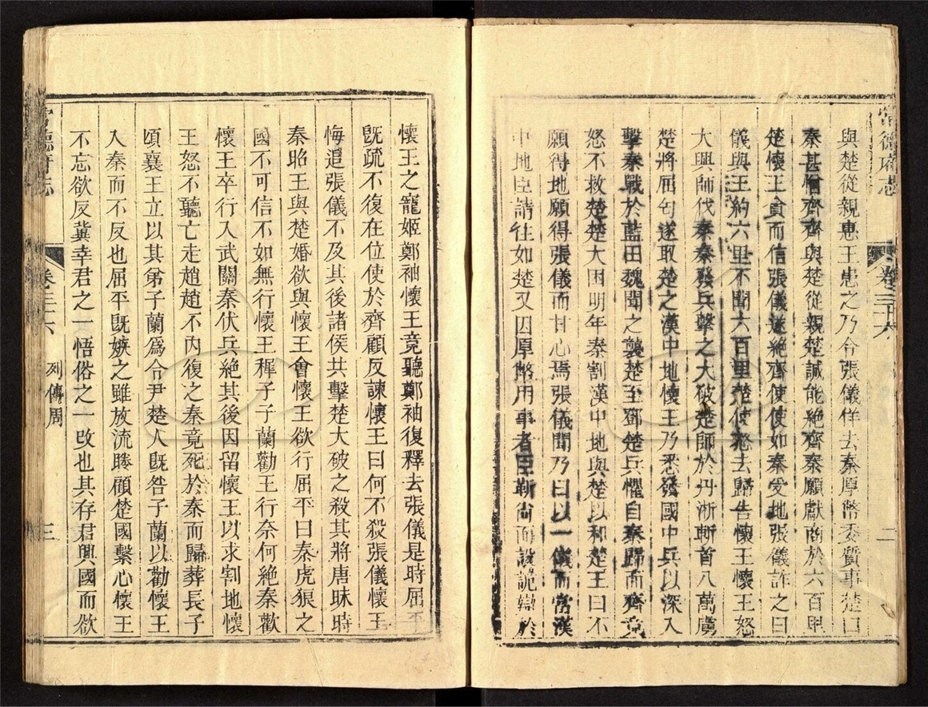 常德府志
卷三十六
二
與楚從親惠王患之乃令張儀佯去秦厚幣委質事楚曰
秦甚憎齊齊與楚從親楚誠能絕齊秦願獻商於六百里
楚懷王貪而信張儀遂絕齊使使如秦受地張儀詐之曰
儀與王約六里不聞六百里楚使怒去歸告懷王懷王怒
大興師伐秦秦發兵擊之大破楚師於丹淅斬首八萬虜
楚將屈匄遂取楚之漢中地懷王乃悉發國中兵以深入
擊秦戰於藍田魏聞之襲楚至鄧楚兵懼自秦歸而齊竟
怒不救楚楚大困明年秦割漢中地與楚以和楚王曰不
願得地願得張儀而甘心焉張儀聞乃曰以一儀而當漢
中地臣請往如楚又因厚幣用事者臣靳尚而設詭辯於
懷王之寵姬鄭袖懷王竟聽鄭袖復釋去張儀是時屈平
既疏不復在位使於齊顧反諫懷王曰何不殺張儀懷王
悔追張儀不及其後諸侯共擊楚大破之殺其將唐昧時
秦昭王與楚婚欲與懷王會懷王欲行屈平曰秦虎狼之
國不可信不如無行懷王穉子子蘭勸王行奈何絕秦歡
懷王卒行入武關秦伏兵絕其後因留懷王以求割地懷
王怒不聽亡走趙趙不內復之秦竟死於秦而歸葬長子
頃襄王立以其弟子蘭爲令尹楚人既咎子蘭以勸懷王
入秦而不反也屈平既嫉之雖放流睠顧楚國繫心懷王
不忘欲反冀幸君之一悟俗之一改也其存君興國而欲
常德府志
卷三十六
列傳周
三